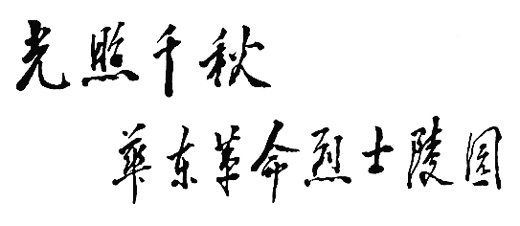 光照千秋
華东革命烈士陵园